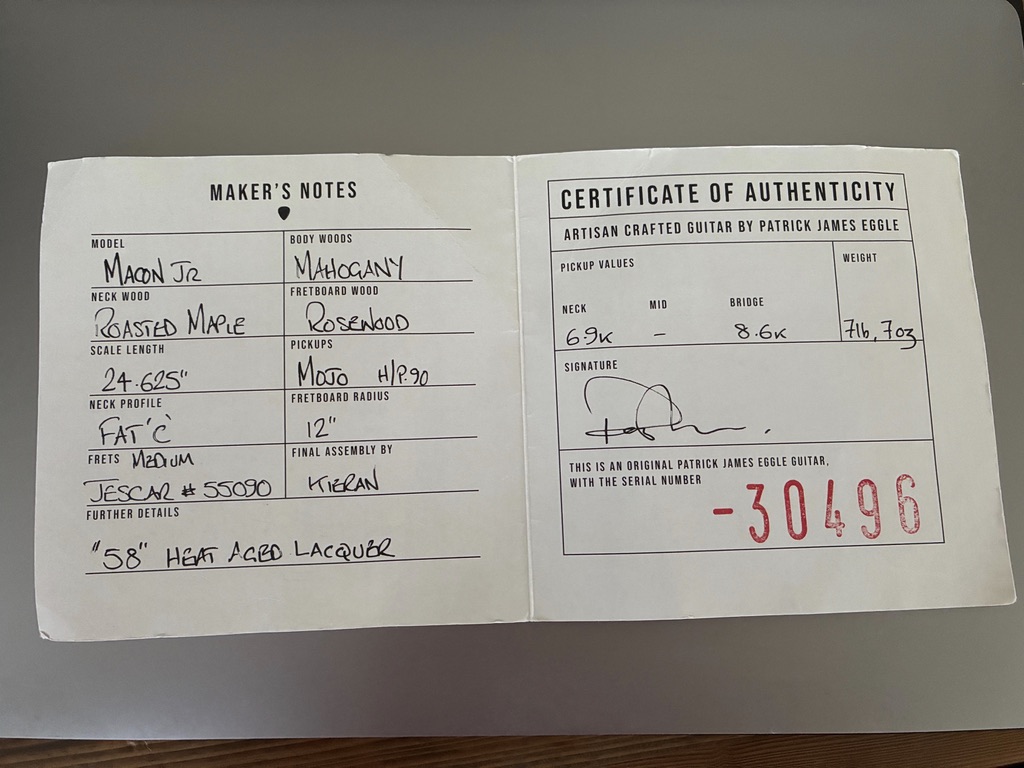 MAKER'S NOTES
MODEL
MACON JR
BODY WOODS
MAHOGANY
NECK WOOD
ROASTED MAPLE
FRETBOARD WOOD
ROSEWOOD
SCALE LENGTH
24.625"
PICKUPS
MOJO H/P.90
NECK PROFILE
FAT 'C'
FRETBOARD RADIUS
12"
FRETS MEDIUM
JESCAR # 55090
FINAL ASSEMBLY BY
KIERAN
FURTHER DETAILS
"58" HEAT AGED LACQUER
CERTIFICATE OF AUTHENTICITY
ARTISAN CRAFTED GUITAR BY PATRICK JAMES EGGLE
PICKUP VALUES
NECK MID BRIDGE
6.9K – 8.6K
WEIGHT
7lb, 7oz
SIGNATURE
THIS IS AN ORIGINAL PATRICK JAMES EGGLE GUITAR,
WITH THE SERIAL NUMBER
-30496